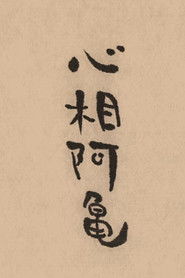 心相阿亀